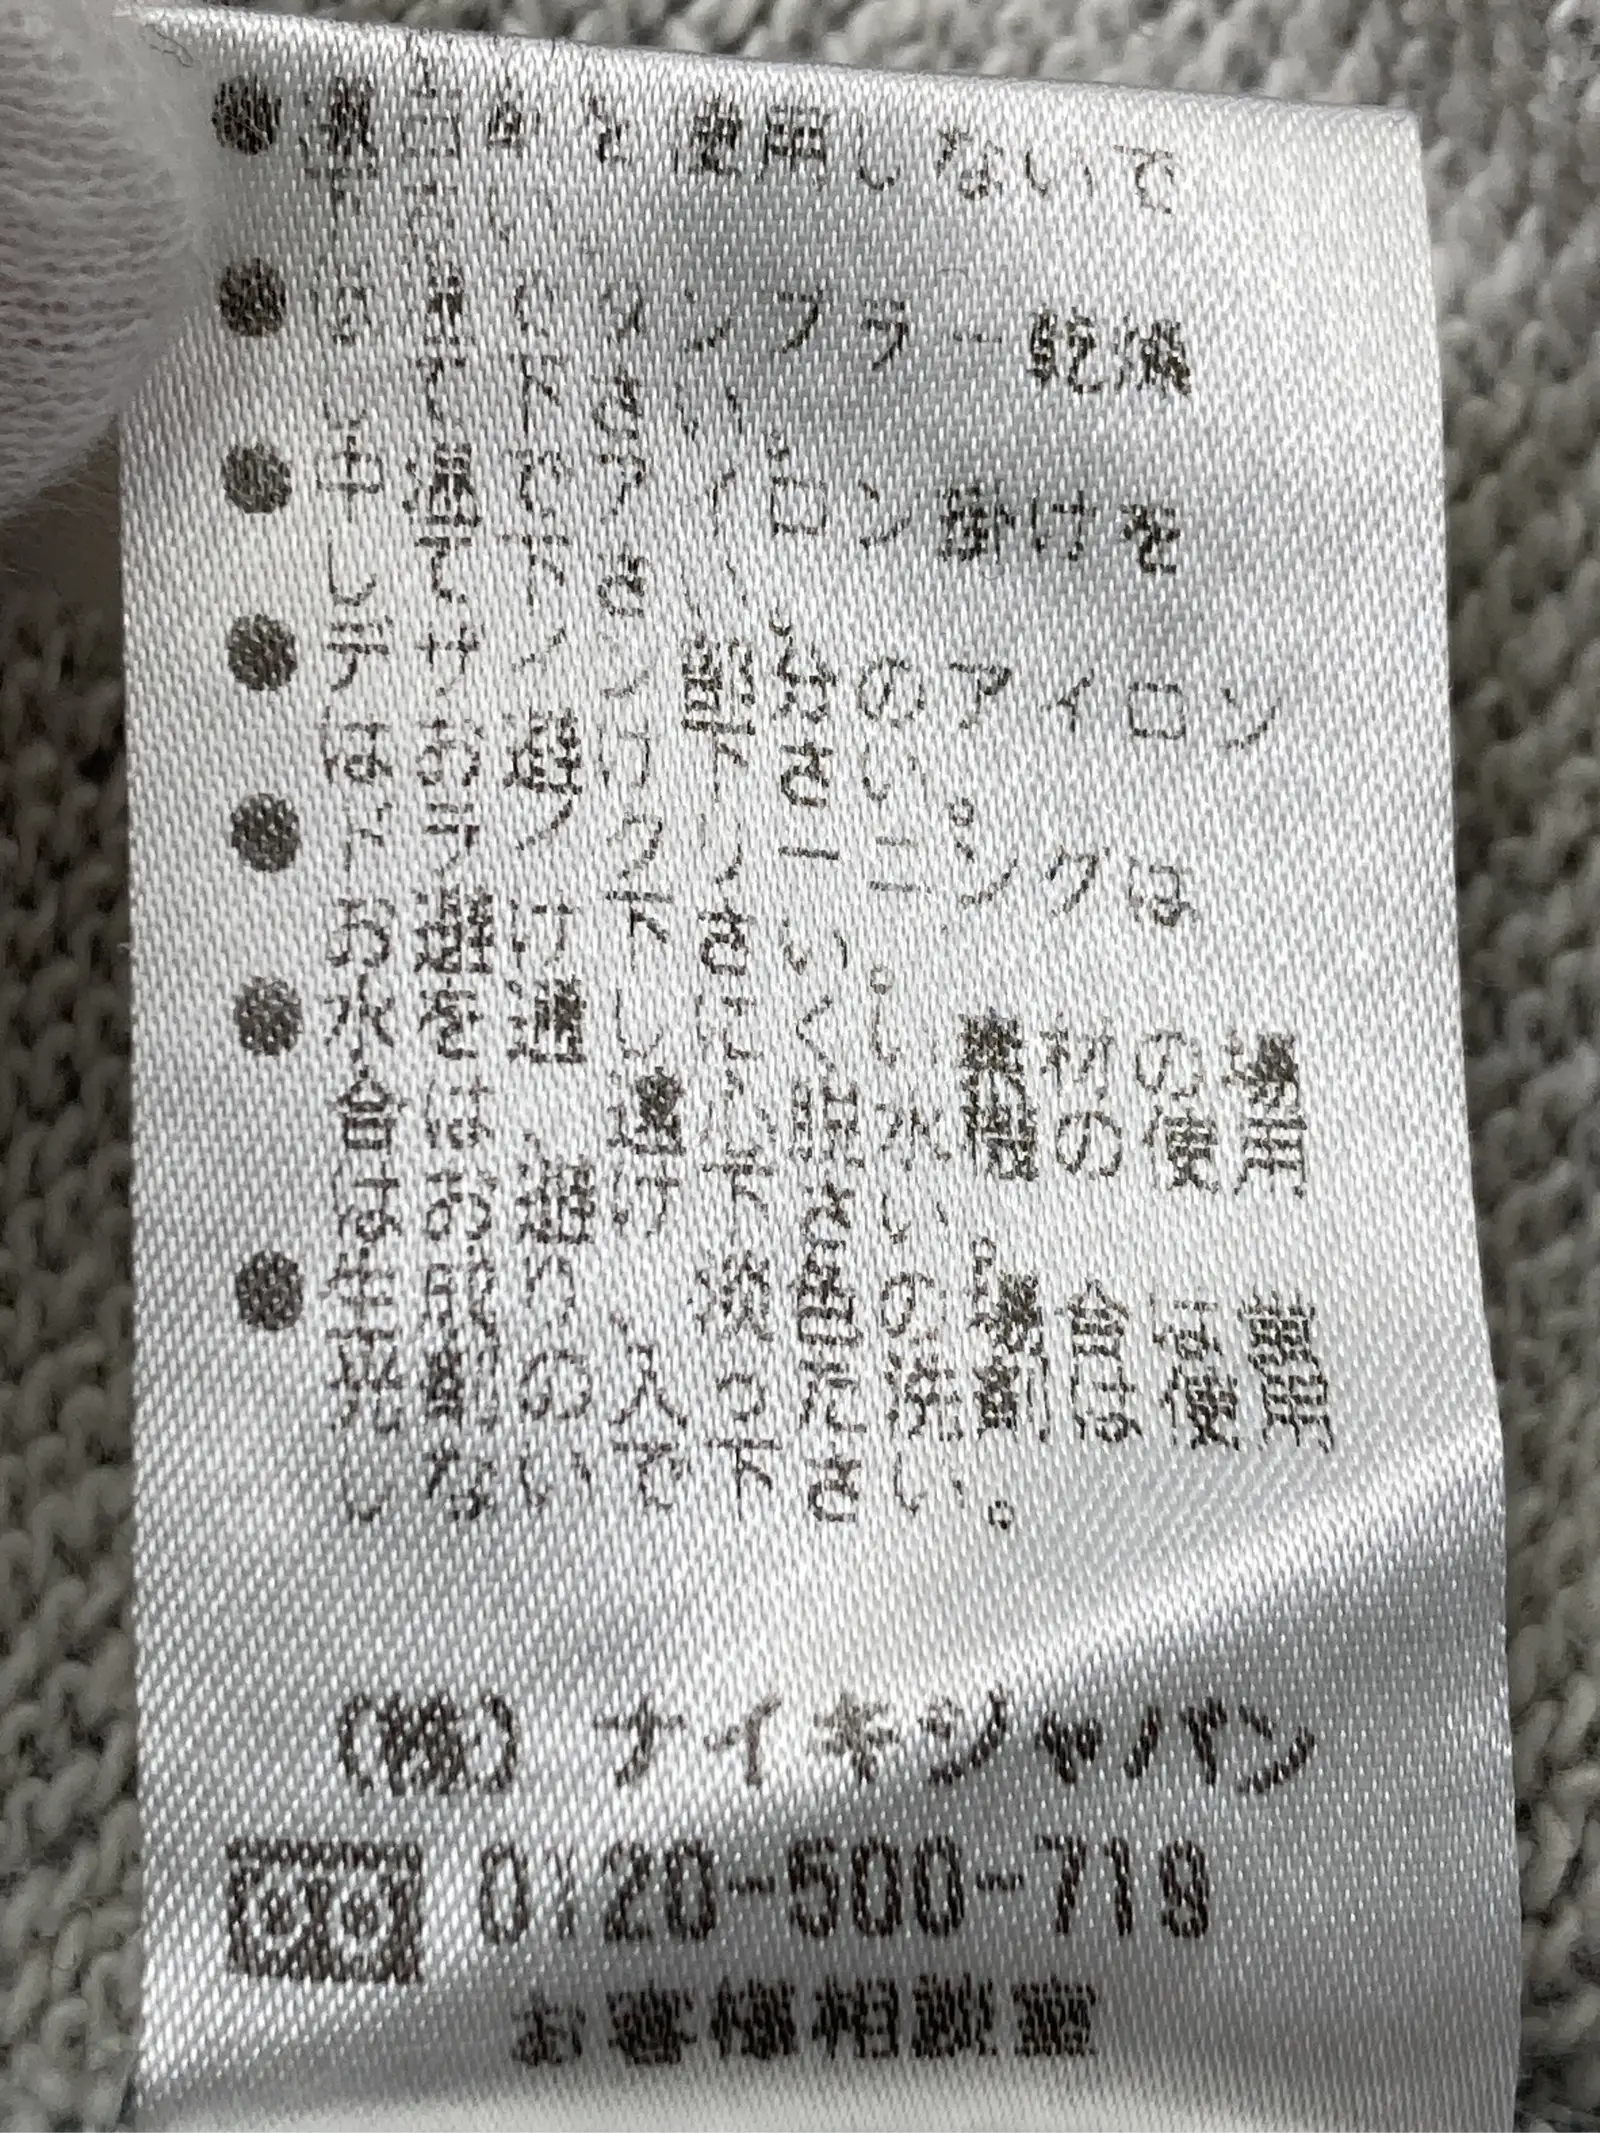 ●漂白剤を使用しないで
下さい。
●弱い タンブラー乾燥
して下さい。
●中温でアイロン掛けを
して下さい。
●デザイン部分のアイロン
はお避け下さい。
●ドライクリーニングは
お避け下さい。
●水を通しにくい素材の場
合は、遠心脱水機の使用
はお避け下さい。
●生成り、淡色の場合は蛍
光剤の入った洗剤は使用
しないで下さい。
(株) ナイキジャパン
0120-500-719
お客様相談室